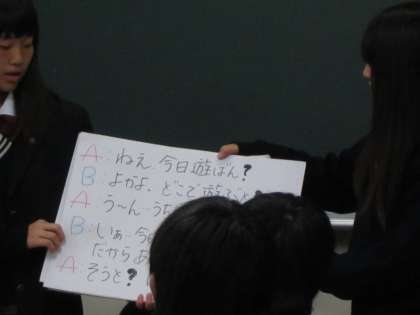 A: ねえ 今日遊ばん?
B: よかよ、どこで遊ぶと?
A う〜ん…うち
B: じゃ…今日
だからあ
A そうと?